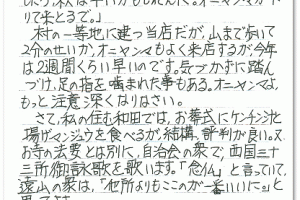 りて来とるで。」
村の一等地に建つ当店だが、山まで歩いて
2分のせいか、オニヤンマもよく来店するが今年
は2週間くらい早いのです。気づかずに踏ん
づけ、足の指を噛まれた事もある。オニヤンマよ、
もっと注意深くなりなさい。
さて、私の住む和田では、お葬式にケンチン汁と
揚げマンジュウを食べるが、結構、評判が良い。又
お寺の法要とは別に、自治会の衆で、西国三十
三所御詠歌を歌います。「念仏」と言っていて、
遠山の衆は、「他所よりもここが一番いいに。」と